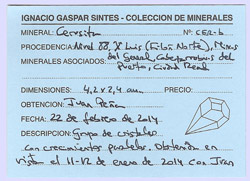 IGNACIO GASPAR SINTES - COLECCION DE MINERALES
MINERAL: Cerusita Nº: CER-6
PROCEDENCIA: Nivel 88, Luis (Filón Norte), Minas
MINERALES ASOCIADOS: del Horcajo,
Puerto, Ciudad Real
DIMENSIONES: 4,2x2,4 cm. PRECIO:
OBTENCION: Juan Peña
FECHA: 22 de febrero de 2014
DESCRIPCION: Grupo de cristales
con crecimientos paralelos. Obtenida en
el 11-12 de enero de 2014 con Juan